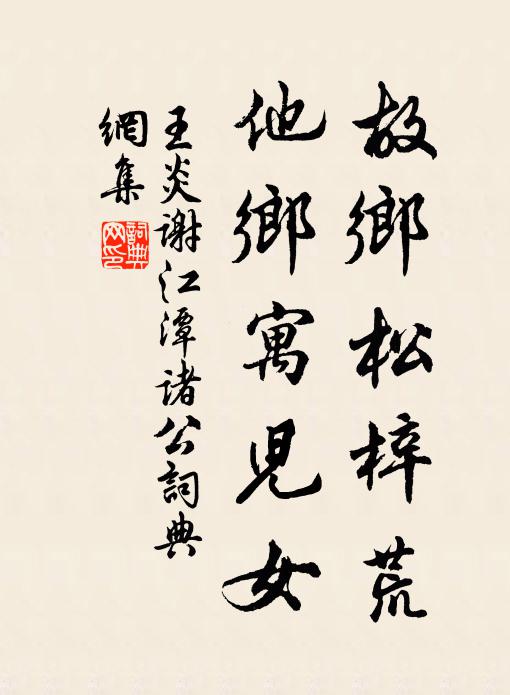 故鄉松梓荒
他鄉寓児女
王炎謝江潭諸公詞典
網集
詞典網印